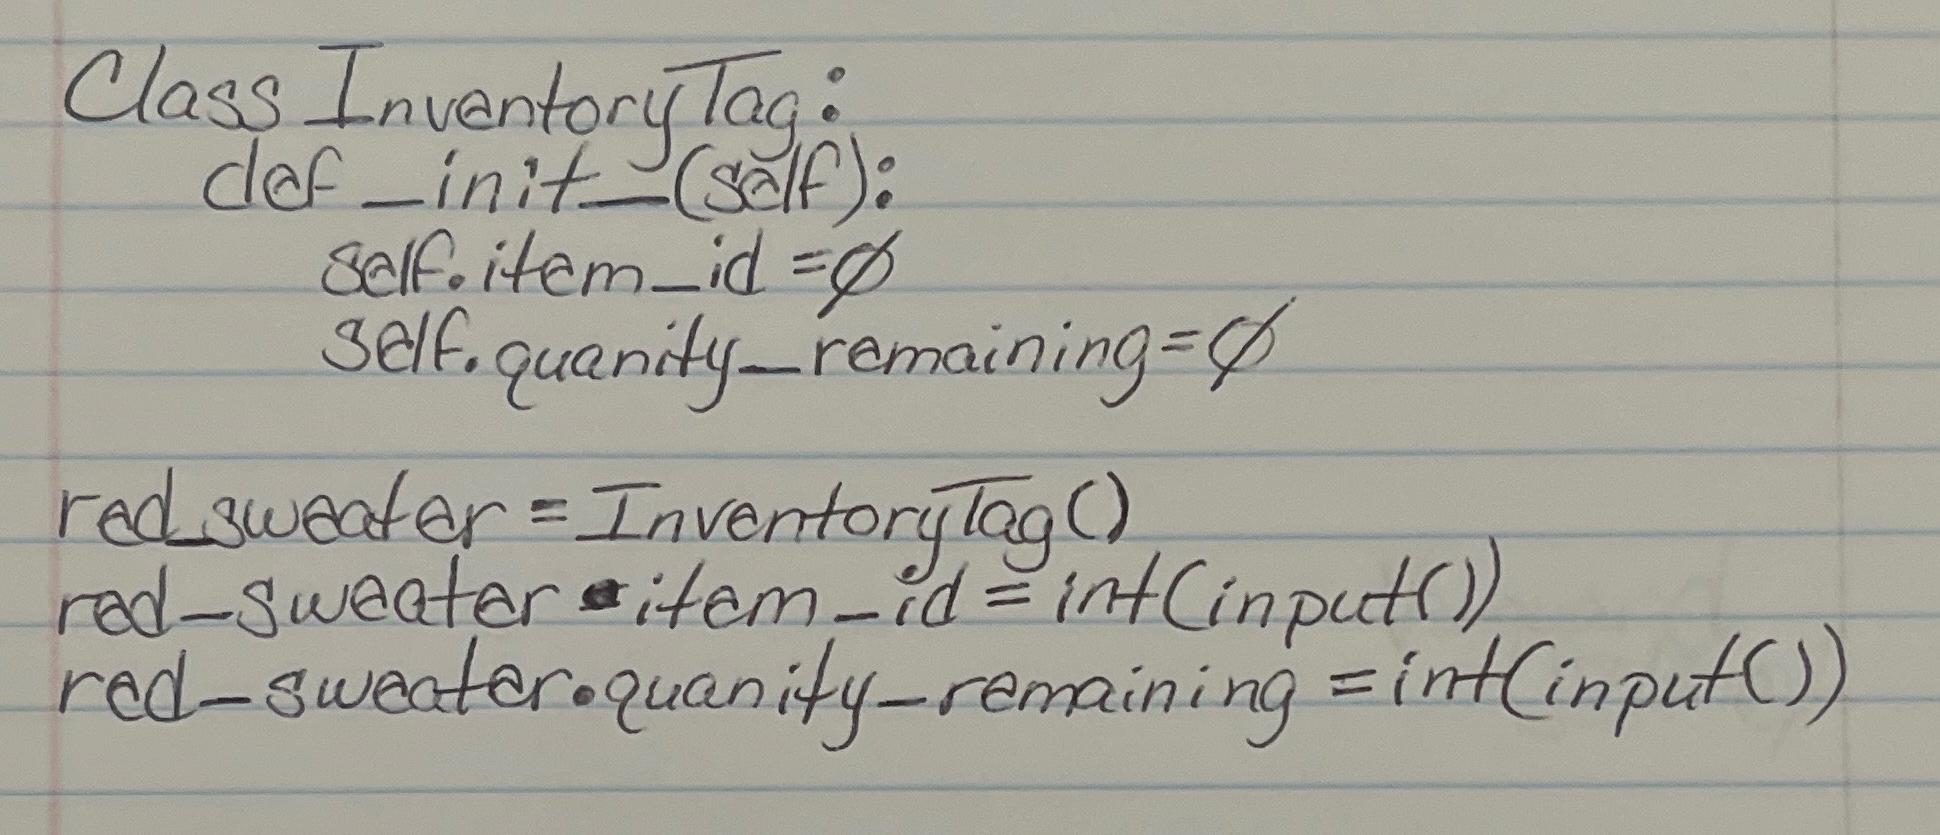 Class InventoryTag:
def _init_(self):
self.item_id = 0
self.quanity_remaining = 0
red_sweater = InventoryTag()
red_sweater.item_id = int(input())
red_sweater.quanity_remaining = int(input())